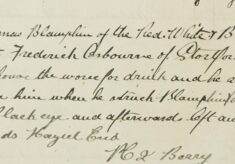 mas Blamphin of the Red, White & B
Frederick Osbourne of Stortfor
the worse for drink and he a
him when he struck Blamphin
black eye and afterwards left
do Hazel End
Berry